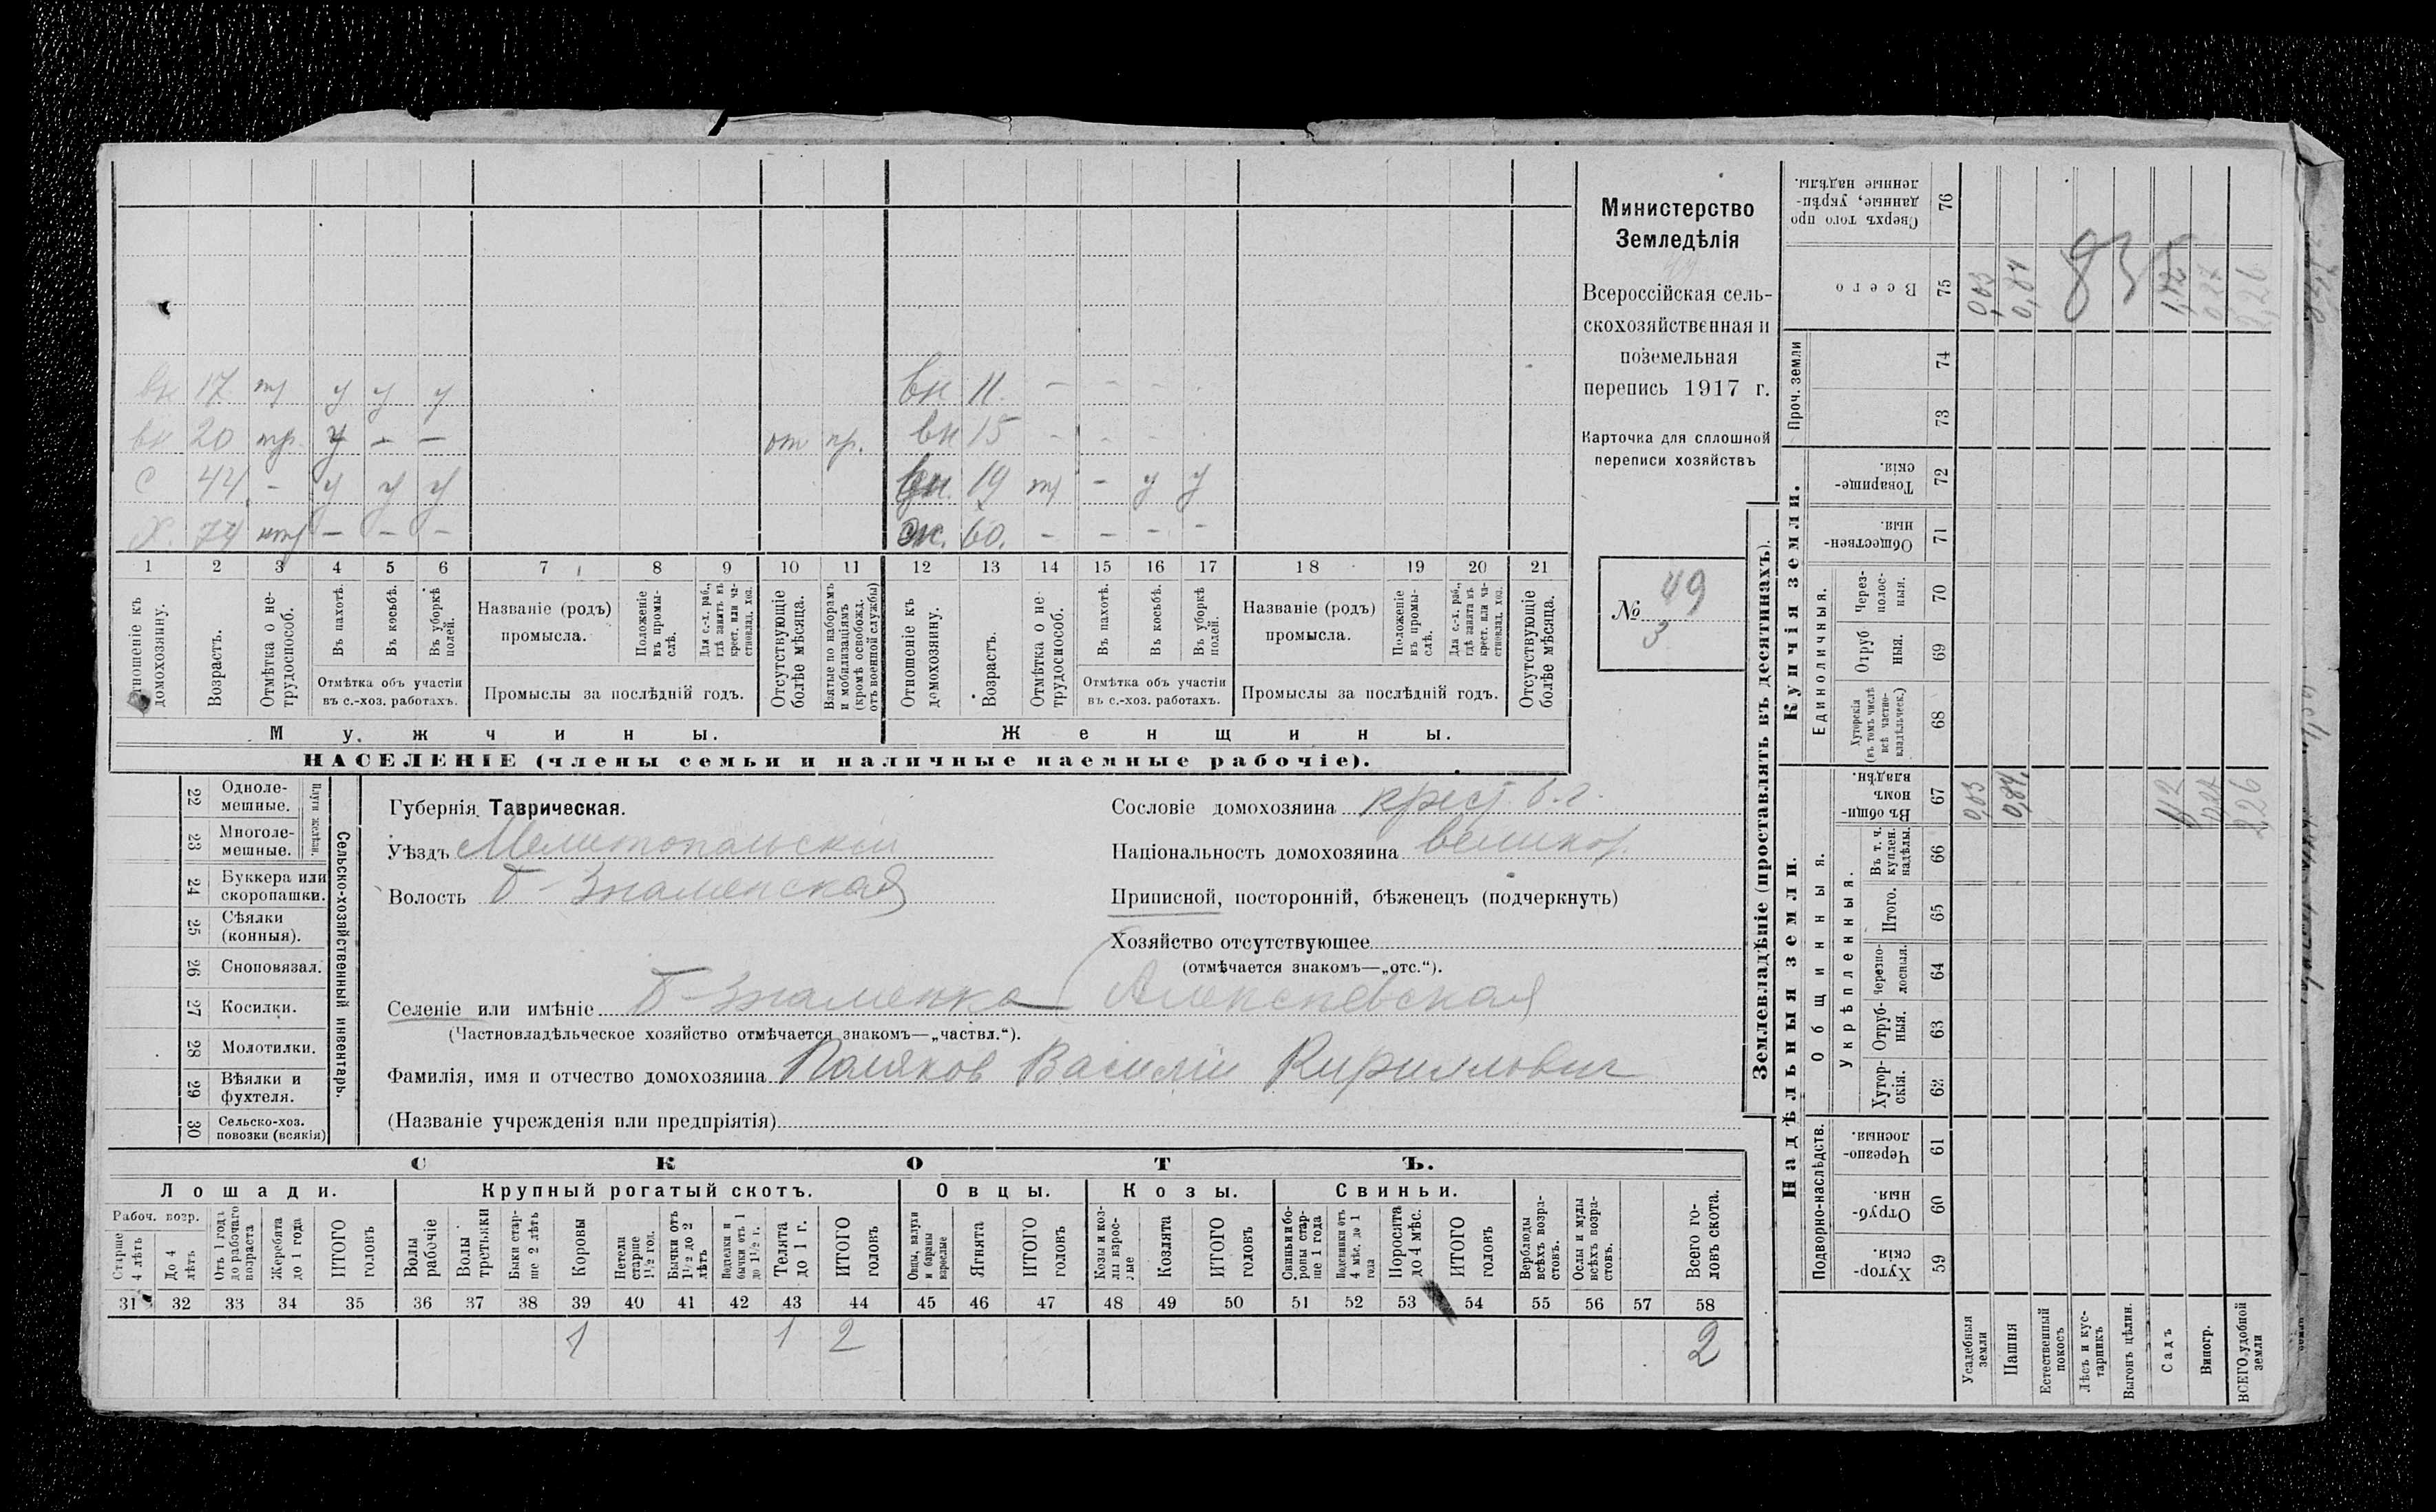 вн 17 тр у у у вн 11 - - - -
вн 20 тр. у - - от пр. вн 15 - - -
с 44 - у у у вн. 19 тр - у у
х. 74 нтр - - - ж. 60. - - - -
1 2 3 4 5 6 7 8 9 10 11 12 13 14 15 16 17 18 19 20 21
Отношеніе къ домохозяину.
Возрастъ.
Отмѣтка о не-трудоспособ.
Въ пахотѣ.
Въ косьбѣ.
Въ уборкѣ полей.
Отмѣтка объ участіи
въ с.-хоз. работахъ.
Названіе (родъ)
промысла.
Положеніе въ промы-слѣ.
Для с.-х. раб., гдѣ занятъ въ крест. или ча-стновлад. хоз.
Промыслы за послѣдній годъ.
Отсутствующіе болѣе мѣсяца.
Взятые по наборамъ и мобилизаціямъ (кромѣ освобожд. отъ военной службы)
Отношеніе къ домохозяину.
Возрастъ.
Отмѣтка о не-трудоспособ.
Въ пахотѣ.
Въ косьбѣ.
Въ уборкѣ полей.
Отмѣтка объ участіи
въ с.-хоз. работахъ.
Названіе (родъ)
промысла.
Положеніе въ промы-слѣ.
Для с.-х. раб., гдѣ занята въ крест. или ча-стновлад. хоз.
Промыслы за послѣдній годъ.
Отсутствующіе болѣе мѣсяца.
Мужчины.
Женщины.
НАСЕЛЕНІЕ (члены семьи и наличные наемные рабочіе).
Министерство
Земледѣлія
Всероссійская сель-
скохозяйственная и
поземельная
перепись 1917 г.
Карточка для сплошной
переписи хозяйствъ
№ 49
3
22 Одноле-мешные.
23 Многоле-мешные.
Плуги желѣзн.
24 Буккера или скоропашки.
25 Сѣялки (конныя).
26 Сноповязал.
27 Косилки.
28 Молотилки.
29 Вѣялки и фухтеля.
30 Сельско-хоз. повозки (всякія)
Сельско-хозяйственный инвентарь.
Губернія Таврическая.
Уѣздъ Мелитопольскій
Волость Б-Знаменская
Сословіе домохозяина крест. б.г.
Національность домохозяина великор.
Приписной, посторонній, бѣженецъ (подчеркнуть)
Хозяйство отсутствующее
(отмѣчается знакомъ—„отс.“).
Селеніе или имѣніе Б-Знаменка Алексѣевская
(Частновладѣльческое хозяйство отмѣчается знакомъ—„частвл.“).
Фамилія, имя и отчество домохозяина Поляков Василий Кириллович
(Названіе учрежденія или предпріятія)
СКОТЪ.
Лошади.
Крупный рогатый скотъ.
Овцы.
Козы.
Свиньи.
Рабоч. возр.
Старше 4 лѣтъ
До 4 лѣтъ
Отъ 1 года до рабочаго возраста
Жеребята до 1 года
ИТОГО головъ
Волы рабочіе
Волы третьяки
Быки стар-ше 2 лѣтъ
Коровы
Нетели старше 1½ год.
Бычки отъ 1½ до 2 лѣтъ
Подтелки и бычки отъ 1 до 1½ г.
Телята до 1 г.
ИТОГО головъ
Овцы, валухи и бараны взрослые
Ягнята
ИТОГО головъ
Козы и коз-лы взрос-лые
Козлята
ИТОГО головъ
Свиньи и бо-ровы стар-ше 1 года
Подсвинки отъ 4 мѣс. до 1 года
Поросята до 4 мѣс.
ИТОГО головъ
Верблюды всѣхъ возра-стовъ.
Ослы и мулы всѣхъ возра-стовъ.
Всего го-ловъ скота.
31 32 33 34 35 36 37 38 39 40 41 42 43 44 45 46 47 48 49 50 51 52 53 54 55 56 57 58
1 1 2 2
Землевладѣніе (проставлять въ десятинахъ).
Надѣльныя земли.
Купчія земли.
Проч. земли
Подворно-наслѣдств.
Общинныя.
Укрѣпленныя.
Единоличныя.
Сверхъ того про-данные, укрѣп-ленные надѣлы. 76
Всего 75 0,03 0,84 1,12 0,27 2,26
835
74
73
Товарище-скія. 72
Обществен-ныя. 71
Через-полос-ныя. 70
Отруб-ныя. 69
Хуторскія (въ томъ числѣ всѣ частно-владѣльческ.) 68
Въ общин-номъ владѣн. 67 0,03 0,84 1,12 0,27 2,26
Въ т. ч. куплен. надѣлы. 66
Итого. 65
Черезпо-лосныя. 64
Отруб-ныя. 63
Хутор-скія. 62
Черезпо-лосныя. 61
Отруб-ныя. 60
Хутор-скія. 59
Усадебныя земли
Пашня
Естественный покосъ
Лѣсъ и кус-тарникъ
Выгонъ цѣлин.
Садъ
Виногр.
ВСЕГО удобной земли